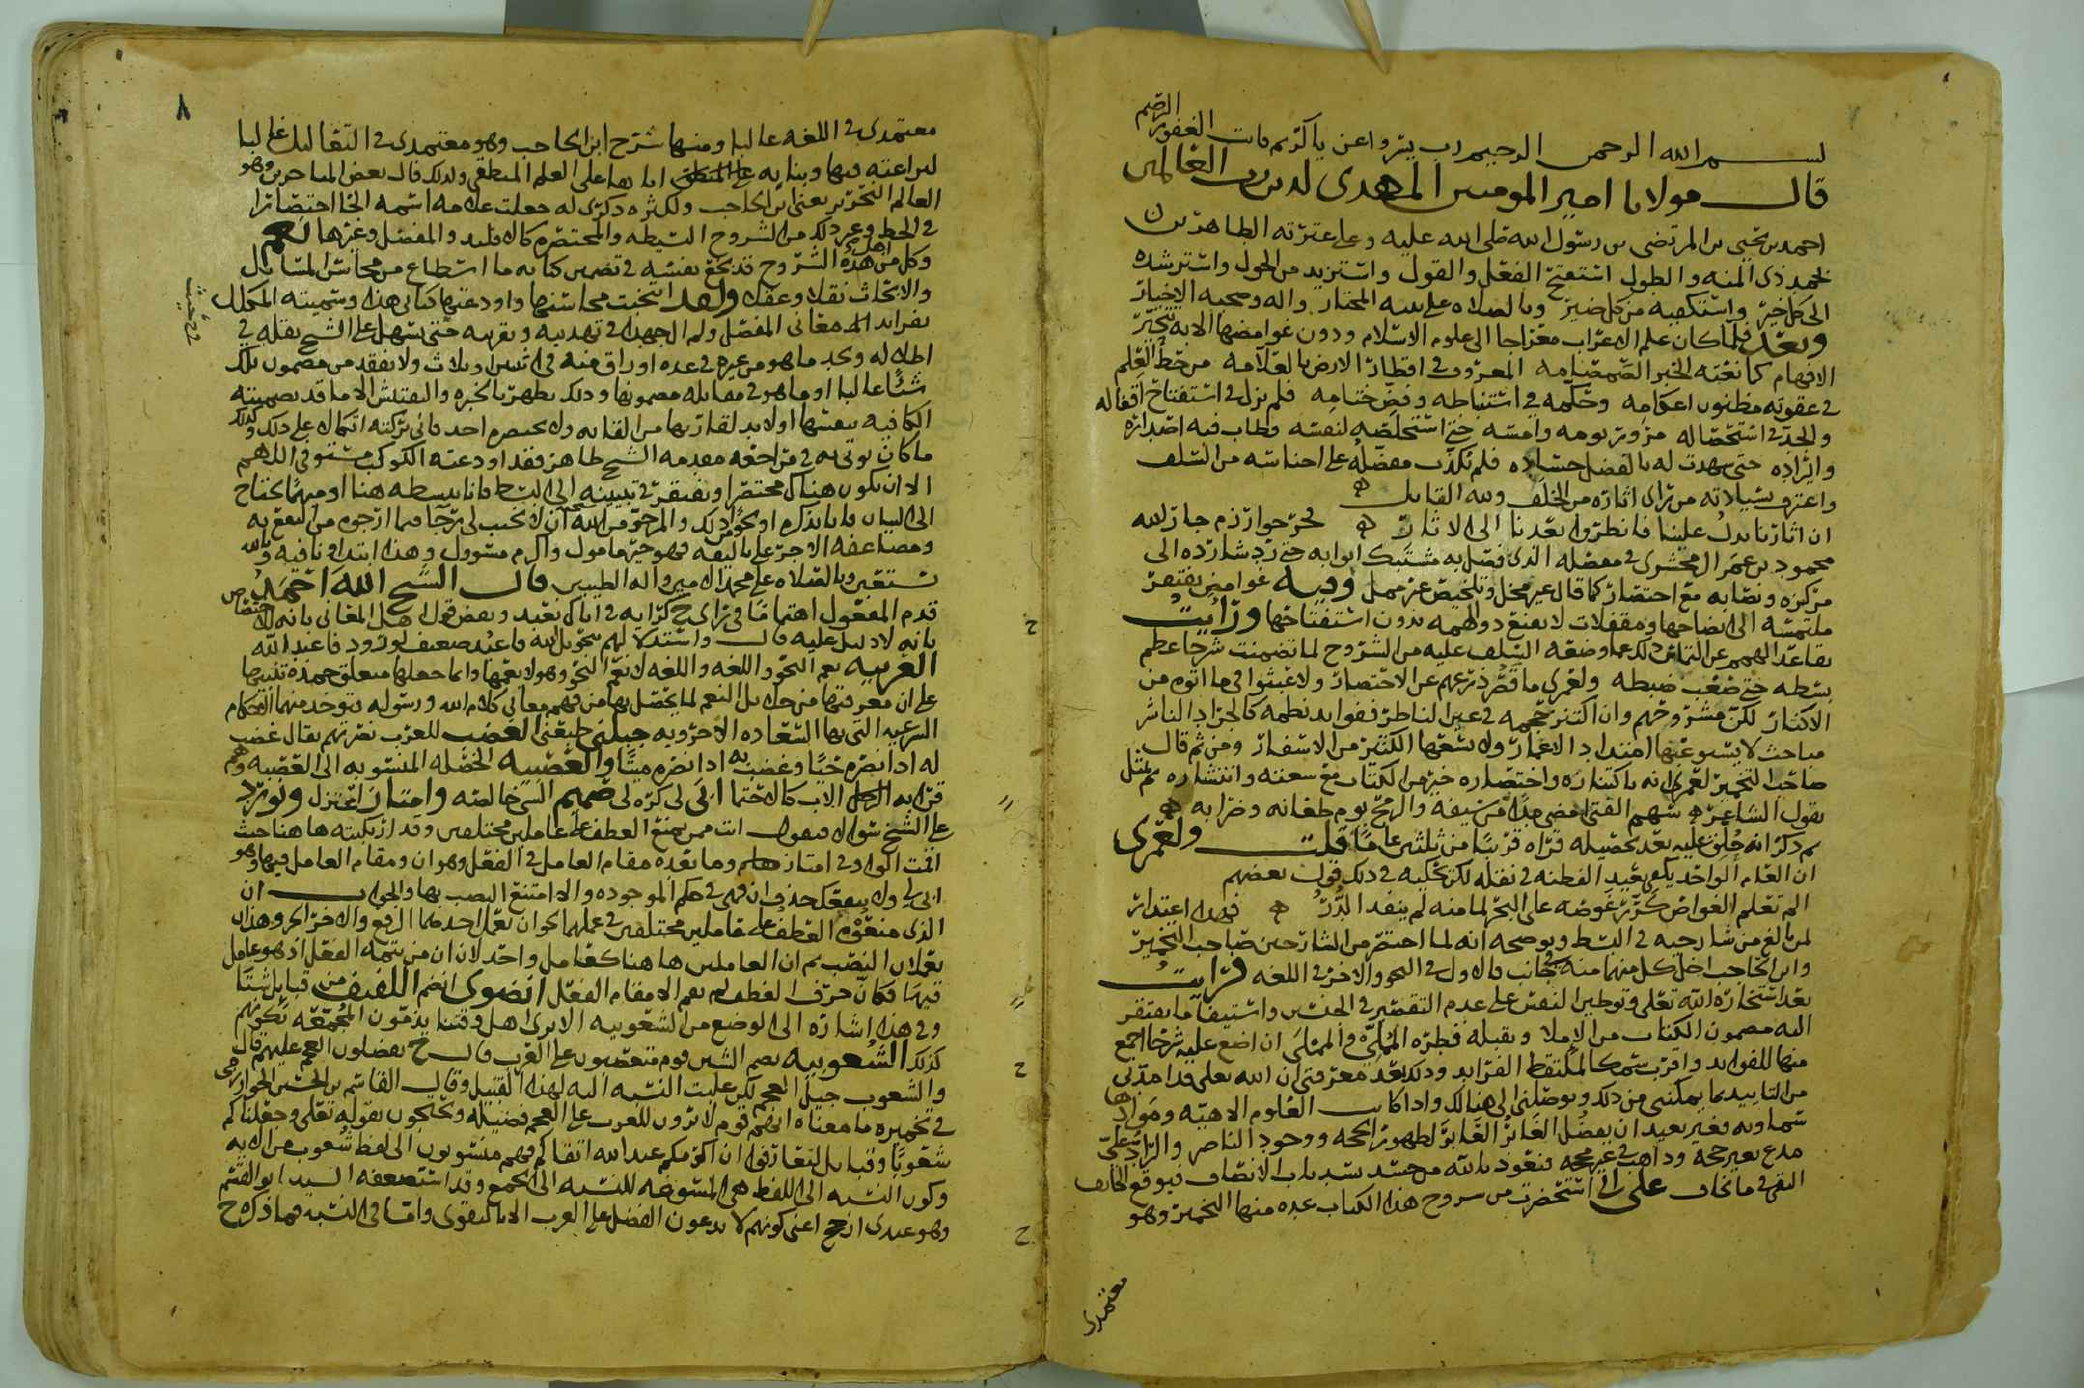 بسم الله الرحمن الرحيم رب يسر واعن يا كريم فانت الغفور الرحيم
قال مولانا امير المومنين المهدي لدين رب العالمين
احمد بن يحيى بن المرتضى بن رسول الله صلى الله عليه وعلى عترته الطاهرين
بحمد ذي المنه والطول استفتح الفعل والقول واستزيد من الحول واسترشده
الى كل خير واستكفيه من كل ضير وبالصلاه على نبيه المختار واله وصحبه الاخيار
وبعد فلما كان علم الاعراب معراجا الى علوم الاسلام ودون غوامضها الابه تتحير
الافهام كما نعته الحبر الصمصامه المعروف في اقطار الارض بالعلامه من خط العلم
في عقوته مظنون اعكامه وحكمه في استنباطه وفض ختامه فلم نزل في استفتاح اقفاله
والجد في استحصاله مر وتر يومه وامسه حتى استخلصه لنفسه وطاب فيه اصداره
وايراده حتى شهدت له بالفضل حساده فلم تكذب مفصله على اجناسه من السلف
واعترف بسيادته من تراى اثاره من الخلف ولله القايل
ان اثارنا تدل علينا فانظروا بعدنا الى الاثار فخر خوارزم جار الله
محمود بن عمر الزمخشري في مفصله الذي فصل به مشتبك ابوابه حتى رد شارده الى
مركزه ونصابه مع اختصار كما قال غير مخل وتلخيص غير ممل وفيه غوامض يفتقر
ملتمسه الى ايضاحها ومقفلات لا يقنع ذو الهمه بدون استفتاحها ورايت
تقاعد الهمم عن التماس ذلك مما وضعه السلف عليه من الشروح لما تضمنت شرحا عظم
بسطه حتى صعب ضبطه ولعمري ما قصر ذرعهم عن الاختصار ولا عبثوا في ما اتوه من
الاكثار لكن مشروحهم وان اكتنز حجمه في عين الناظر ففوايد نظمه كالجراد الناشر
مباحث لا يستوعبها امتداد الاعمار ولا يسعها الكثير من الاسفار ومن ثم قال
صاحب التخمير لعمري انه باكتنازه واختصاره خير من الكتاب مع سعته وانتشاره ثم تمثل
بقول الشاعر شهم الفتى امضى حدا من سيفه والرمح يوم طعانه وضرابه
ثم ذكر انه خلق عليه بعد تحصيله قراه قريبا من ثلثين عاما قلت ولعمري
ان العام الواحد يكفي بعيد الفطنه في نقله لكن نحكيه في ذلك قول بعضهم
الم تعلم الغواص كرر غوصه على البحر لما منه لم ينفد الدر فهذا اعتذار
لمن بالغ من شارحيه في البسط ويوضحه انه لما اختصر من الشارحين صاحب التخمير
وابن الحاجب اخل كل منهما منه بجانب فالاول في النحو والاخر في اللغه فرايت
بعد استخارة الله تعلى وتوطين النفس على عدم التقصير في الجنسين واستيفا ما يفتقر
اليه مضمون الكتاب من الاملا وتقبله فطره المملي والمملى ان اضع عليه شرحا اجمع
منها للفوايد واقرب سمكا لملتقط الفرايد وذلك بعد معرفتي ان الله تعلى قد امدني
من التاييد بما يمكنني من ذلك ويوصلني الى هنالك واذا كانت العلوم الاهيه وموادها
سماويه فغير بعيد ان يفضل الغابر الغابر لطهور الحجه ووجود الناصر والراد على
مدع بغير حجه وذاهب في غير محجه فنعوذ بالله من حسد يسد باب الانصاف فيوقع الخايف
التقي في ما يخاف على اني استحضرت من شروح هذا الكتاب عده منها التخمير وهو
معتمدي
٨
معتمدي في اللغه غالبا ومنها شرح ابن الحاجب وهو معتمدي في التعاليل غالبا
لبراعته فيها وبنايه اياها على العلم المنطقي ولذلك قال بعض المتاخرين وهو
العالم النحرير يعني ابن الحاجب ولكثره ذكري له جعلت علامه اسمه الخا اختصارا
في الخط وغير ذلك من الشروح البسيطه والمختصره كالاقليد والمفضل وغيرها نعم
وكل من اهل هذه الشروح قد بخع نفسه في تضمين كتابه ما اسطاع من محاسن المسايل
والابحاث نقلا وعقلا ولقد انتخبت محاسنها واودعتها كتابي هذا وسميته المكلل
بفرايد معاني المفصل ولم ال جهدا في تهذيبه وتقريبه حتى يسهل على الشيخ نقله في
اطلاله وتجد ما هو من غيره في عده اوراق منه في اثنين او ثلاث ولا يفقد من مضمون تلك
شيا غالبا او ما هو في مقابله مضمونها وذلك يظهر بالخبره والتفتيش الا ما قد تضمنته
الكافيه بنفسها اولا بد لقاريها من القا به ولا يحتصره احد فاني تركته اتكالا على ذلك وكذلك
ما كان يوتى به في مراجعه مقدمه الشيخ طاهر فقد اودعته الكوكب مستوفى اللهم
الا ان يكون هناك مختصرا ويفتقر في تبيينه الى البسط فانا نبسطه هنا او مبهما يحتاج
الى البيان فانا نذكره او نحو ذلك والمرجو من الله ان لا يخيب لي رجا فيما ارجوه من النفع به
ومضاعفه الاجر على تاليفه فهو خير مامول واكرم مسوول وهذا ابتداونا فيه وبالله
نستعين وبالصلاه على محمد الامين واله الطيبين قال الشيخ الله احمد
قدم المفعول اهتماما في راي ح كرايه في اياك نعبد وبعض محول اهل المعاني بانه للاختصاص
بانه لا دليل عليه قال واستدلالهم بنحو بل الله فاعبد ضعيف لورود فاعبد الله
العربيه يعم النحو واللغه واللغه لا تعم النحو وهو لا يعمها وانما جعلها متعلق حمده تنبيها
على ان معرفتها من جلايل النعم لما يحصل بها من فهم معاني كلام الله ورسوله فيوخذ منهما الاحكام
الشرعيه التي بها السعاده الاخرويه جبلني طبعني الغضب للعرب نصرتهم يقال غضب
له اذا نصره حيا وغضب به اذا نصره ميتا والعصبيه الخصله المنسوبه الى العصبه وهم
قرابه الرجل لابيه كالاختام ابى لي كره لي صميم الشي خالصه وامتاز اعتزل ويورد
على الشيخ سوال فيقول انت ممن يمنع العطف على عاملين مختلفين وقد ارتكبته هاهنا حيث
اقمت الواو في امتاز وما بعده مقام العامل في الفعل وهو ان ومقام العامل فيها وهو
ابى لي ولا ينفعك حذف ان فهي في حكم الموجوده والا امتنع النصب بها والجواب ان
الذي منعوه العطف على عاملين مختلفين في عملهما نحو ان يعمل احدهما الرفع والاخر الجر وهذان
يعملان النصب ثم ان العاملين هاهنا كعامل واحد لان ان من تتمه الفعل اذ هو عامل
فيها فكان حرف العطف لم يقم الا مقام الفعل انضوى انضم اللفيف من قبايل شتى
وفي هذا اشاره الى الوضع من الشعوبيه الا ترى اهل وقتنا يذمون المجمعه لكونهم
كذلك الشعوبيه بضم الشين قوم متعصبون على العرب قال ح يفضلون العجم عليهم قال
والشعوب جيل العجم لكن غلبت النسبه اليه لهذا القبيل وقال القاسم بن الحسين الخوارزمي
في تخميره ما معناه انهم قوم لا يرون للعرب على العجم فضيله ويحتجون بقوله تعلى وجعلناكم
شعوبا وقبايل لتعارفوا ان اكرمكم عند الله اتقاكم فهم منسوبون الى لفظ شعوب من الايه
وكون النسبه الى اللفظ هي المسوغه للنسبه الى الجمع وقد استضعفه السيد ابو القسم
وهو عندي ارجح اعني كونهم لا يدعون الفضل على العرب الا بالتقوى واما في النسبه فما ذكره ح